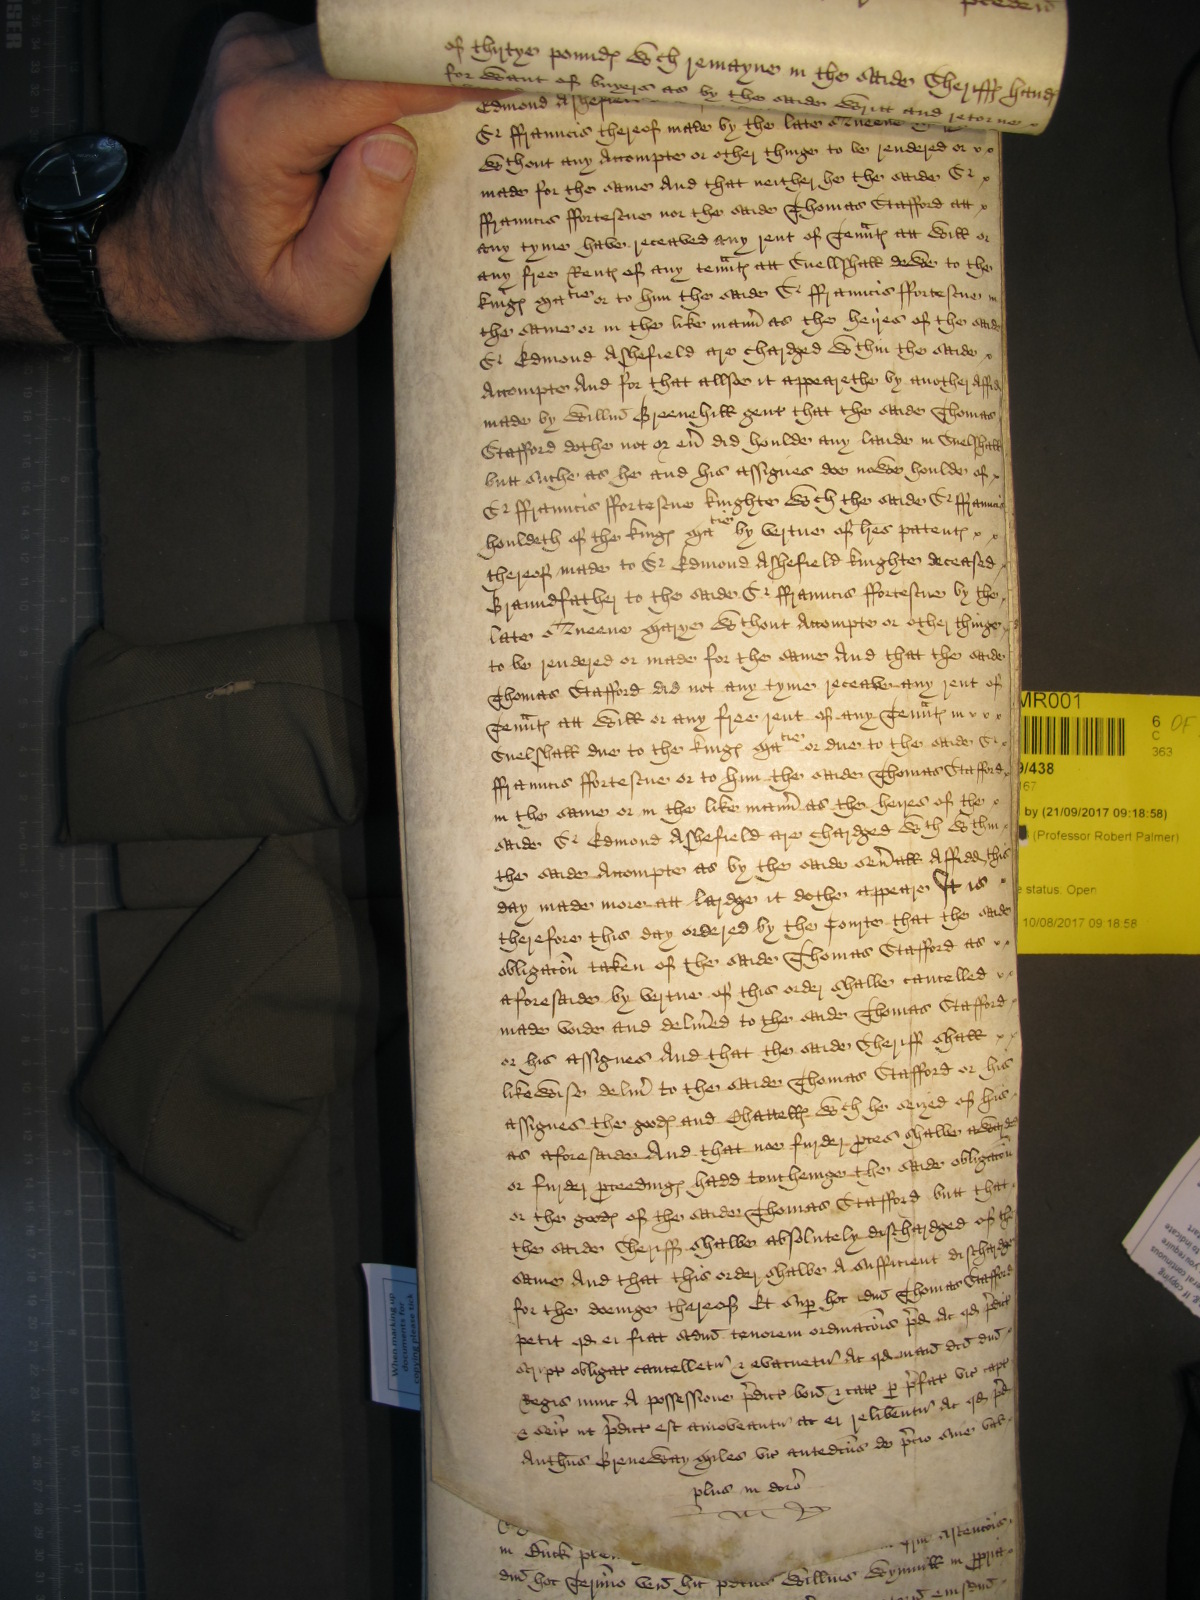 of thirtye pound wch remayne in the saide Sheriffs hand
for want of buyers as by the saide writt and retorne
Edmond Ashefield
Sr ffrauncis thereof made by the late Queene
wthout any Accompte or other thinge to be rendered or
made for the same And that neither he the saide Sr
ffrauncis ffortescue nor the saide Thomas Stafford att
any tyme have receaved any rent of Tennts att will or
any free Rents of any tennts att Snelshall dewe to the
kings Matie or to him the saide Sr ffrauncis ffortescue in
the same or in the like mann as the heires of the saide
Sr Edmond Ashefield are chardged wthin the saide
Accompte And for that allsoe it appearethe by another Affid
made by Willm Greenehill gent that the saide Thomas
Stafford dothe not or ev did houlde any lande in Snelshall
butt suche as he and his assignes doe nowe houlde of
Sr ffrauncis ffortescue knighte wch the saide Sr ffrauncis
houldeth of the kings Matie by vertue of lres patents
thereof made to Sr Edmond Ashefield knighte deceased
Graundfather to the saide Sr ffrauncis ffortescue by the
late Queene Marye wthout Accompte or other thinge
to be rendered or made for the same And that the saide
Thomas Stafford did not any tyme receave any rent of
Tennts att will or any free rent of any Tennts in
Snelshall due to the kings Matie or due to the saide Sr
ffrauncis ffortescue or to him the saide Thomas Stafford
in the same or in the like mann as the heires of the
saide Sr Edmond Ashefield are chardged wth wthin
the saide Accompte as by the saide sevall Affidd this
day made more att lardge it dothe appeare It is
therefore this day ordered by the Courte that the saide
obligacon taken of the saide Thomas Stafford as
aforesaide by vertue of this order shalbe cancelled
made voide and delived to the saide Thomas Stafford
or his assignes And that the saide Sheriff shall
likewise deliv to the saide Thomas Stafford or his
assignes the goods and Chattells wch he seized of his
as aforesaide And that noe furder pces shalbe awarded
or furder pceedings hadd touchinge the saide obligacon
or the goods of the saide Thomas Stafford butt that
the saide Sheriff shalbe absolutely dischardged of the
same And that this order shalbe A sufficient dischardge
for the doeinge thereof Et sup hoc idm Thomas Stafford
petit qd ei fiat scdm tenorem ordinacois pd Ac qd pdict
script obligat cancelletur & evacuetur Ac qd man dci dni
Regis nunc A possessione pdict bon & catt p pfat vic capt
& seit ut pdict est amoveantur ac ei relibentur Ac qd pd
Anthus Greneway Miles vic antedcus de pcio sive val
plus in doro
in Buck
dm hoc Termio ven hic Willms Wynnill in ppria
MR001
6 OF
C
363
9/438
167
by (21/09/2017 09:18:58)
(Professor Robert Palmer)
e status: Open
10/08/2017 09:18:58
When marking up
documents for
copying please tick